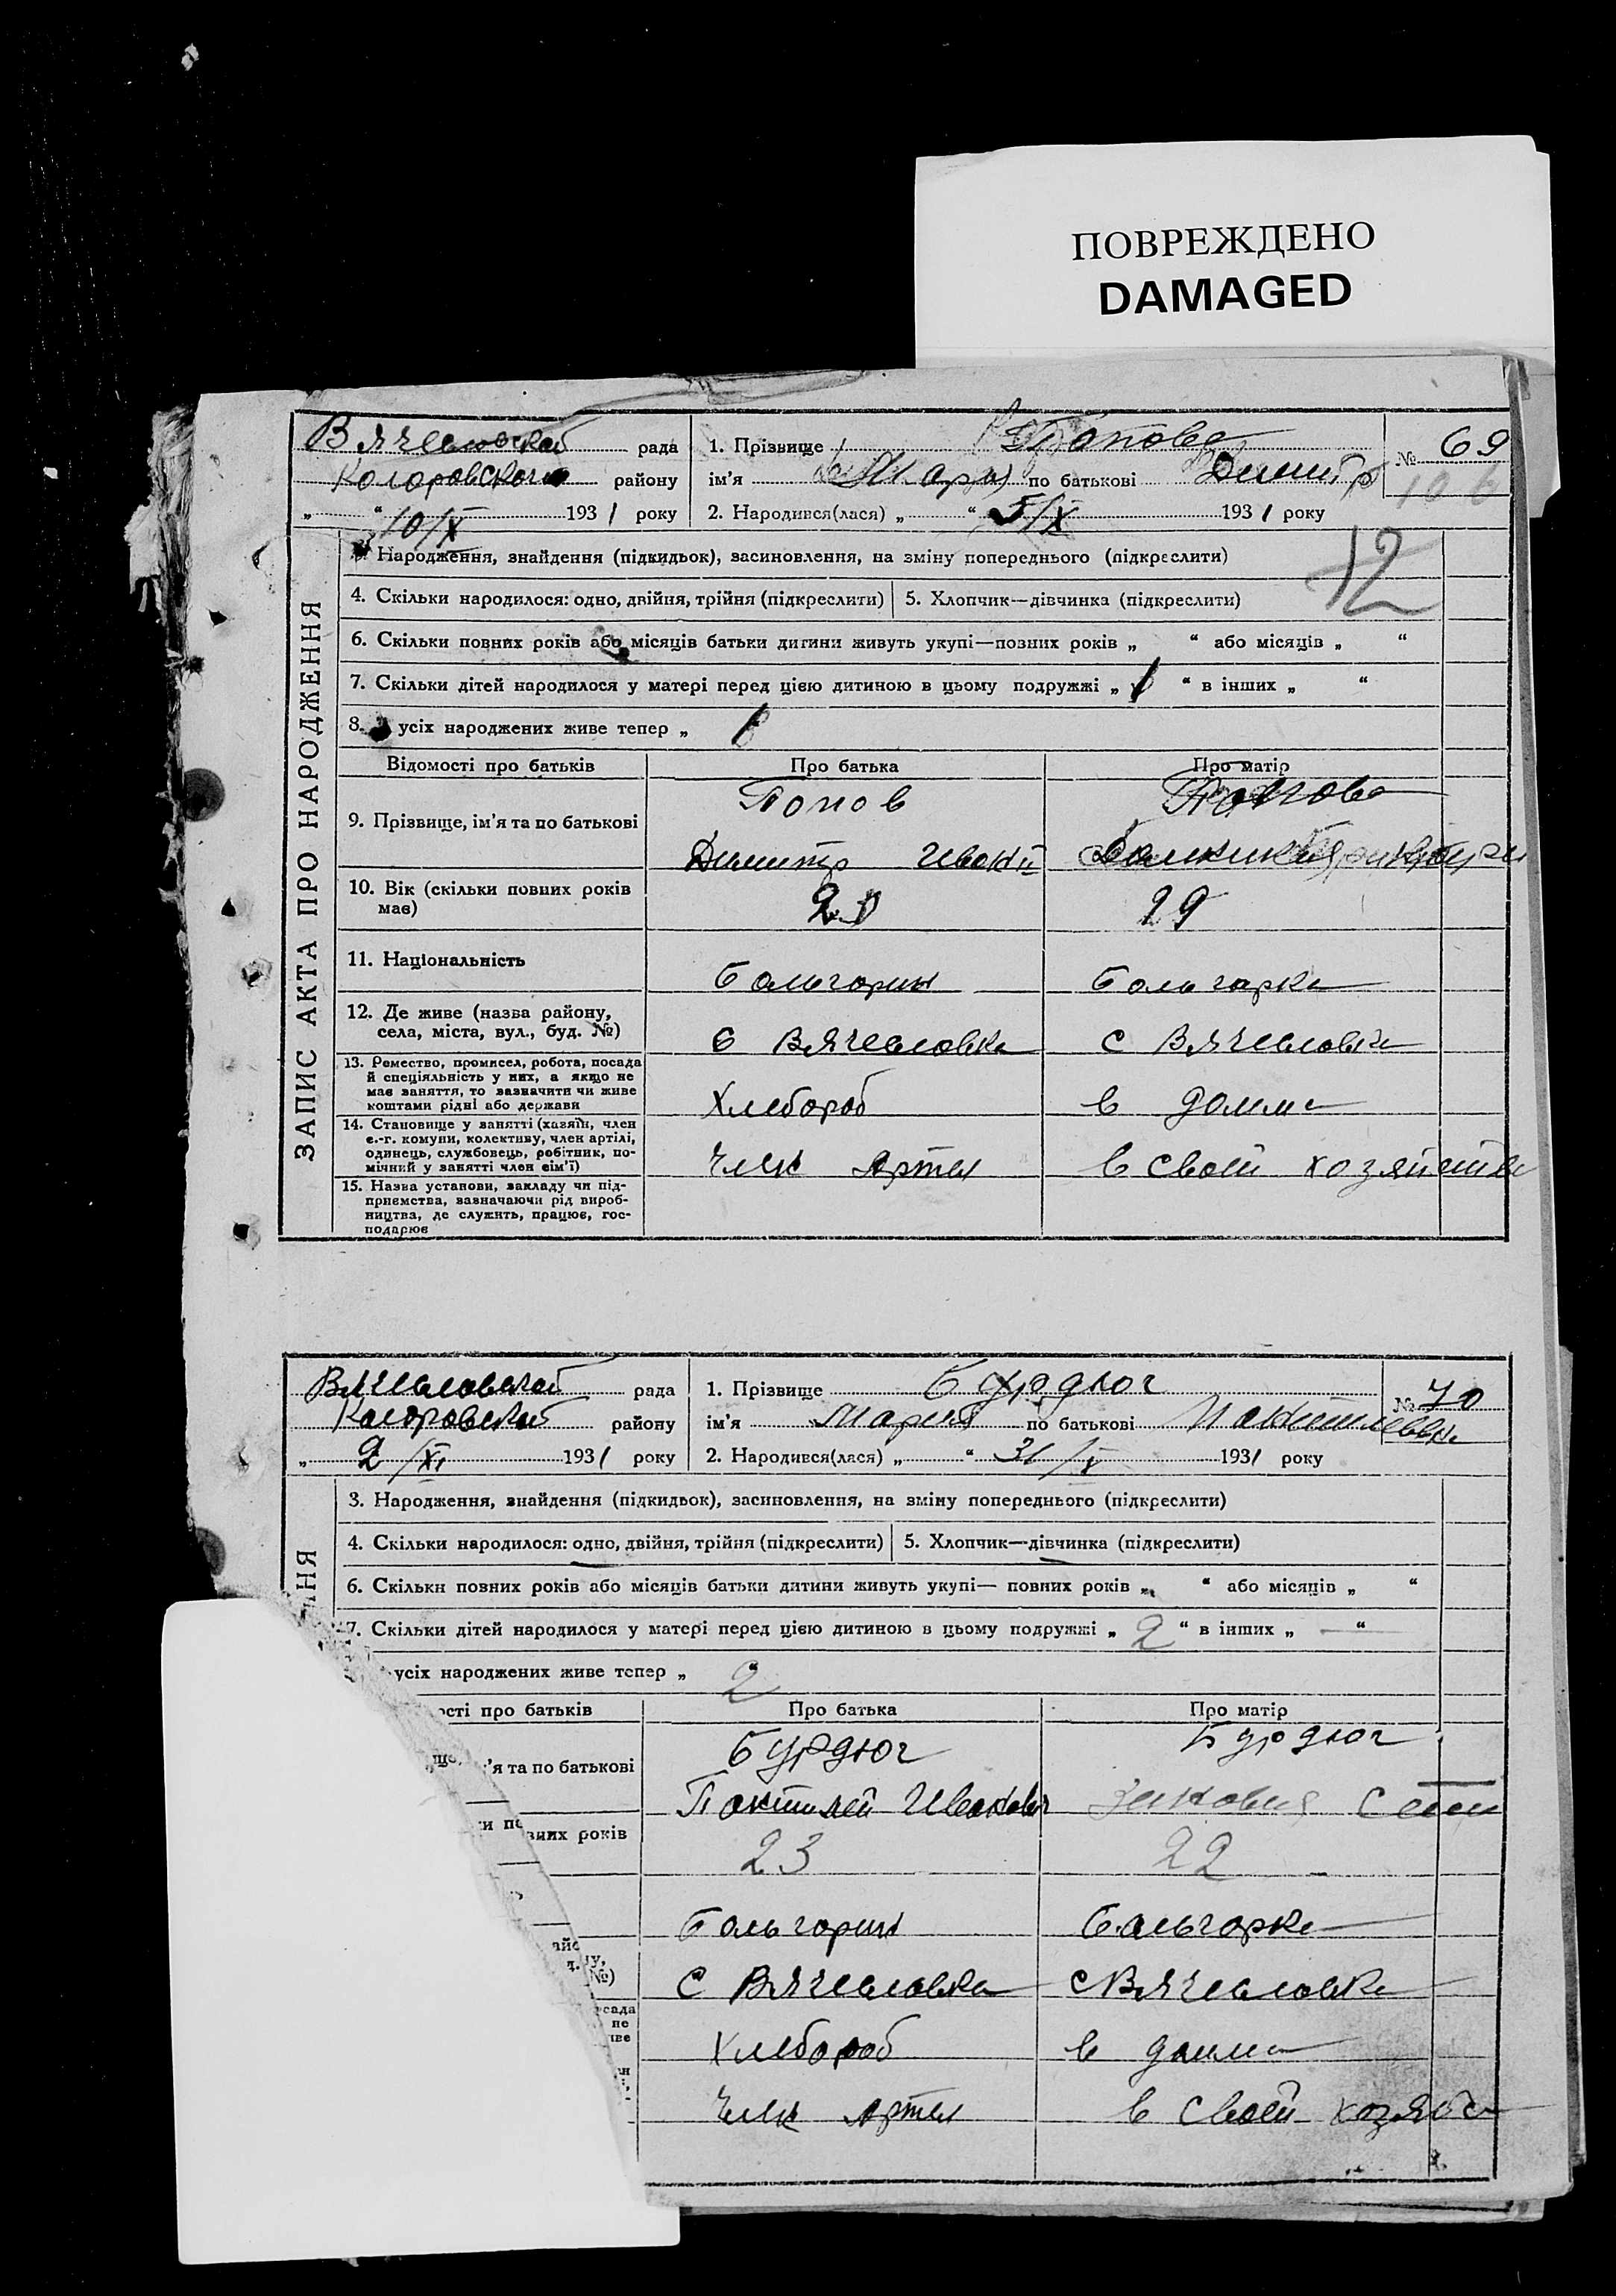 ПОВРЕЖДЕНО
DAMAGED
рада
району
10/X 1931 року
1. Прізвище Попова
№ 69
ім'я по батькові Димитр
2. Народився(лася) „ “ 5/X 1931 року
12
ЗАПИС АКТА ПРО НАРОДЖЕННЯ
Народження, знайдення (підкидьок), засиновлення, на зміну попереднього (підкреслити)
4. Скільки народилося: одно, двійня, трійня (підкреслити) 5. Хлопчик—дівчинка (підкреслити)
6. Скільки повних років або місяців батьки дитини живуть укупі—повних років „ “ або місяців „ “
7. Скільки дітей народилося у матері перед цією дитиною в цьому подружжі „ “ в інших „ “
8. усіх народжених живе тепер „
Відомості про батьків Про батька Про матір
9. Прізвище, ім'я та по батькові
Попов Попова
Димитр
10. Вік (скільки повних років має)
29
11. Національність
Бальгорин Бальгорка
12. Де живе (назва району, села, міста, вул., буд. №)
С Вячеловка с Вячеловка
13. Ремество, промисел, робота, посада
й спеціяльність у них, а якщо не
має заняття, то зазначити чи живе
коштами рідні або держави
Хлебороб в домма
14. Становище у занятті (хазяїн, член
с.-г. комуни, колективу, член артілі,
одинець, службовець, робітник, по-
мічний у занятті член сім'ї)
Член Артел в своей
15. Назва установи, закладу чи під-
приємства, зазначаючи рід вироб-
ництва, де служить, працює, гос-
подарює
рада
району
2/XI 1931 року
1. Прізвище Бурдюг
№ 70
ім'я Мария по батькові
2. Народився(лася) „ “ 31/X 1931 року
ННЯ
3. Народження, знайдення (підкидьок), засиновлення, на зміну попереднього (підкреслити)
4. Скільки народилося: одно, двійня, трійня (підкреслити) 5. Хлопчик—дівчинка (підкреслити)
6. Скільки повних років або місяців батьки дитини живуть укупі— повних років „ “ або місяців „ “
7. Скільки дітей народилося у матері перед цією дитиною в цьому подружжі „ 2 “ в інших „ — “
усіх народжених живе тепер „ 2
ості про батьків Про батька Про матір
'я та по батькові
Бурдюг Бурдюг
Пантилей Иванов Зиновия Семи
років
23 22
Бальгорин Бальгорка
С Вячеловка с Вячеловка
Хлебороб в домма
Член Артел в своей